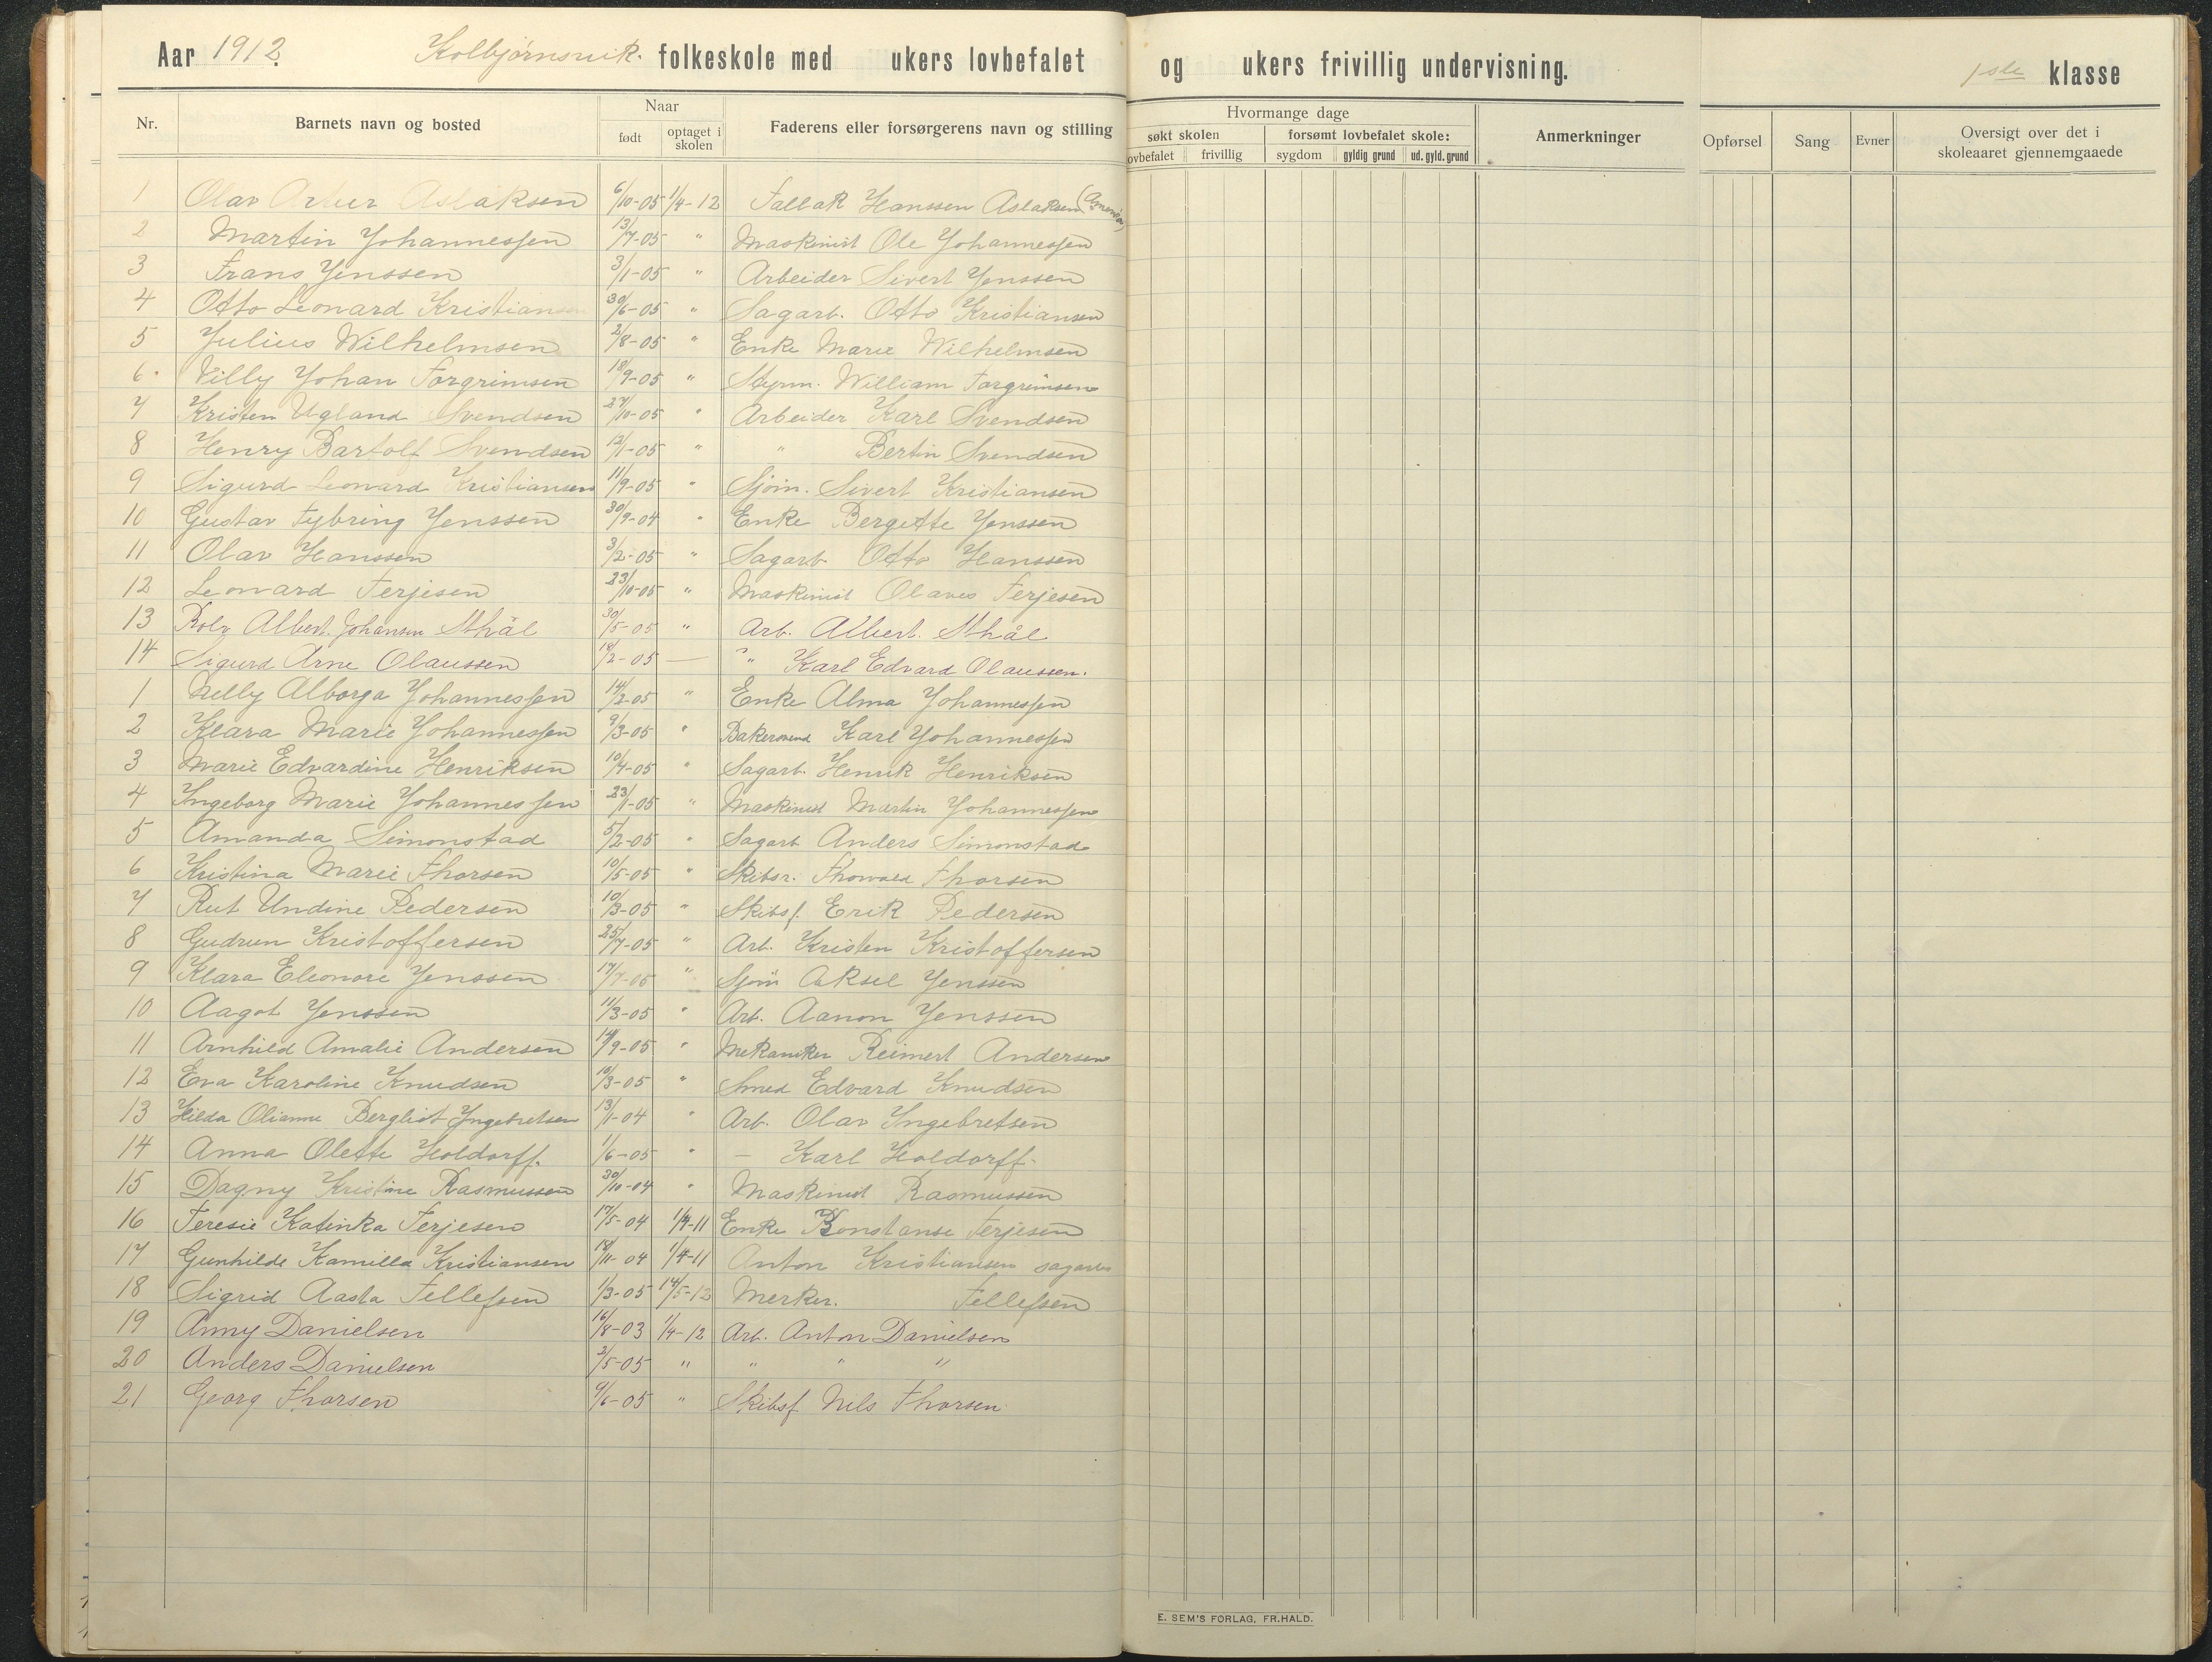 Aar 1912. Kolbjørnsvik. folkeskole med ukers lovbefalet og ukers frivillig undervisning. 1ste klasse
Nr. Barnets navn og bosted Naar født optaget i skolen Faderens eller forsørgerens navn og stilling Hvormange dage søkt skolen lovbefalet frivillig forsømt lovbefalet skole: sygdom gyldig grund ud. gyld. grund Anmerkninger Opførsel Sang Evner Oversigt over det i skoleaaret gjennemgaaede
1 Olav Artur Aslaksen 6/10-05 1/4-12 Tallak Hanssen Aslaksen (Amerika)
2 Martin Johannessen 13/7-05 " Maskinist Ole Johannessen
3 Frans Jenssen 3/1-05 " Arbeider Sivert Jenssen
4 Otto Leonard Kristiansen 30/6-05 " Sagarb. Otto Kristiansen
5 Julius Wilhelmsen 2/8-05 " Enke Marie Wilhelmsen
6. Villy Johan Torgrimsen 18/9-05 " Styrm. William Torgrimsen
7 Kristen Ugland Svendsen 27/10-05 " Arbeider Karl Svendsen
8 Henry Bartolf Svendsen 12/1-05 " " Bertin Svendsen
9 Sigurd Leonard Kristiansen 11/9-05 " Sjøm. Sivert Kristiansen
10 Gustav Tybring Jenssen 30/9-04 " Enke Bergitte Jenssen
11 Olav Hanssen 3/2-05 " Sagarb Otto Hanssen
12 Leonard Terjesen 23/10-05 " Maskinist Olaves Terjesen
13 Rolv Albert Johansen Sthål 30/5-05 " Arb. Albert. Sthål
14 Sigurd Arne Olaussen 18/2-05 — " Karl Edvard Olaussen.
1 Nelly Alborga Johannessen 14/2-05 " Enke Alma Johannessen
2 Klara Marie Johannessen 9/3-05 " Bakersvend Karl Johannessen
3 Marie Edvardine Henriksen 10/4-05 " Sagarb. Henrik Henriksen
4 Ingeborg Marie Johannessen 23/1-05 " Maskinist Martin Johannessen
5 Amanda Simonstad 5/2-05 " Sagarb Anders Simonstad
6 Kristina Marie Thorsen 10/5-05 " Skibsr. Thorvald Thorsen
7 Rut Undine Pedersen 10/3-05 " Skibsf. Erik Pedersen
8 Gudrun Kristoffersen 25/7-05 " Arb. Kristen Kristoffersen
9 Klara Eleonore Jenssen 17/7-05 " Sjøm Aksel Jenssen
10 Aagot Jenssen 11/3-05 " Arb. Aanon Jenssen
11 Arnhild Amalie Andersen 14/9-05 " Mekaniker Reimert Andersen
12 Eva Karoline Knudsen 10/3-05 " Smed Edvard Knudsen
13 Hilda Olianne Bergliot Ingebretsen 13/1-04 " Arb. Olav Ingebretsen
14 Anna Olette Holdorff. 1/6-05 " — Karl Holdorff.
15 Dagny Kristine Rasmussen 30/10-04 " Maskinist Rasmussen
16 Teresie Katinka Terjesen 17/5-04 1/4-11 Enke Konstanse Terjesen
17 Gunhilde Kamilla Kristiansen 18/11-04 1/4-11 Anton Kristiansen sagarb
18 Sigrid Aasta Tellefsen 1/3-05 14/5-12 Merker. Tellefsen
19 Anny Danielsen 16/8-03 1/4-12 Arb. Anton Danielsen
20 Anders Danielsen 2/5-05 " " " "
21 Georg Thorsen 9/6-05 " Skibsf Nils Thorsen
E. SEM'S FORLAG, FR.HALD.